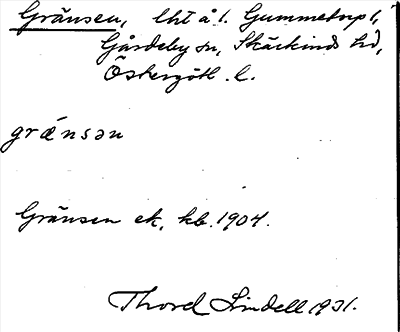 Gränsen, lht å l. Gummetorp 1,
Gårdeby sn, Skärkinds hd,
Östergötl. l.
gränsən
Gränsen ek. kb. 1904.
Thord Lindell 1931.